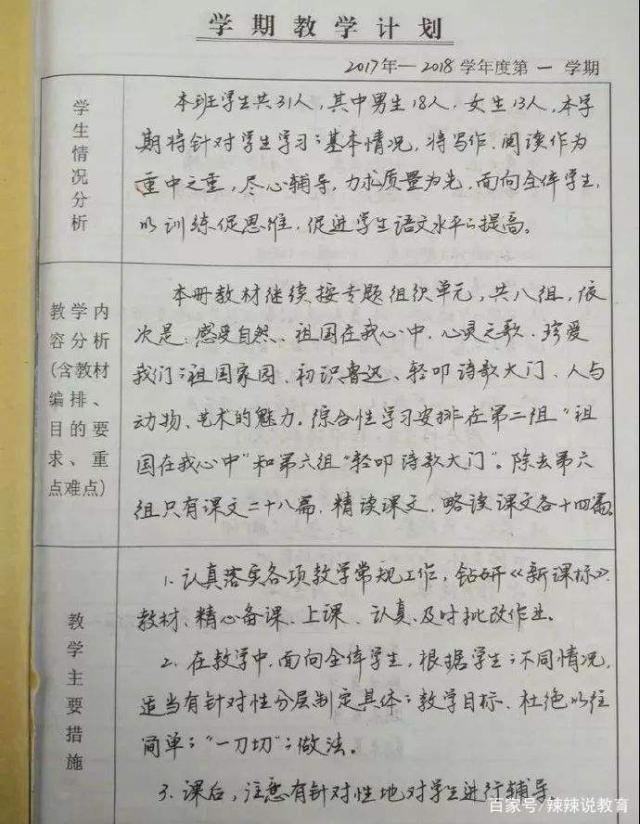 学期教学计划
2017年—2018学年度第一学期
学生情况分析
本班学生共31人，其中男生18人，女生13人，本学
期将针对学生学习的基本情况，将写作、阅读作为
重中之重，尽心辅导，力求质量为先，面向全体学生，
以训练促思维，促进学生语文水平的提高。
教学内
容分析
(含教材
编排、
目的要
求、重
点难点)
本册教材继续按专题组织单元，共八组，依
次是：感受自然、祖国在我心中、心灵之歌、珍爱
我们的祖国家园、初识鲁迅、轻叩诗歌大门、人与
动物、艺术的魅力。综合性学习安排在第二组“祖
国在我心中”和第六组“轻叩诗歌大门”。除去第六
组只有课文二十八篇，精读课文、略读课文各十四篇。
教学主要措施
1.认真落实各项教学常规工作，钻研《新课标》、
教材、精心备课、上课、认真、及时批改作业。
2.在教学中，面向全体学生，根据学生的不同情况，
适当有针对性分层制定具体的教学目标、杜绝以往
简单的“一刀切”的做法。
3.课后，注意有针对性地对学生进行辅导。
百家号/辣辣说教育